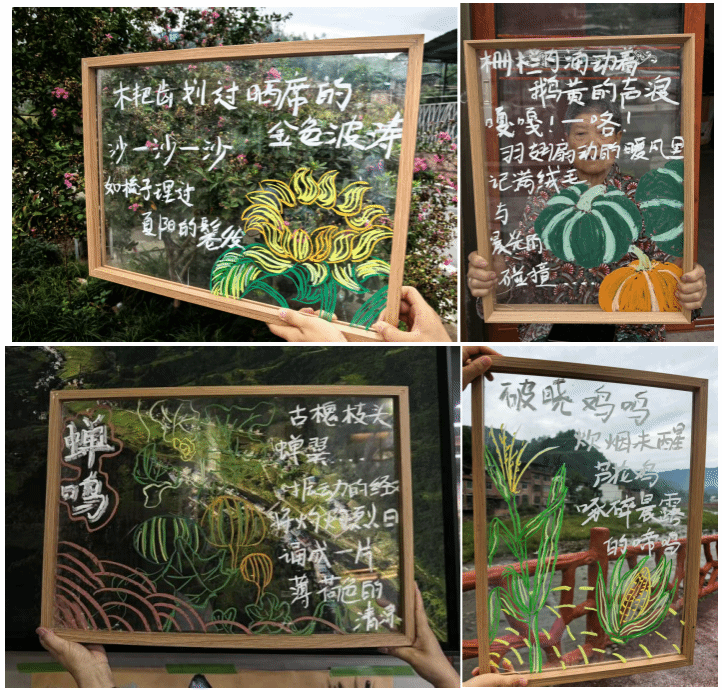 木耙齿划过晒席的
金色波涛
沙一沙一沙
如梳子理过
夏阳的鬓发
栅栏内涌动着
鹅黄的声浪
嘎嘎!一咯!
羽翅扇动的暖风里
记满绒毛
与
晨光的
碰撞....
蝉鸣
古槐枝头
蝉翼....
振动的经
将灼灼烈日
诵成一片
薄荷色的
清凉
破晓鸡鸣
炊烟未醒
芦花鸡
啄碎晨露
的啼鸣